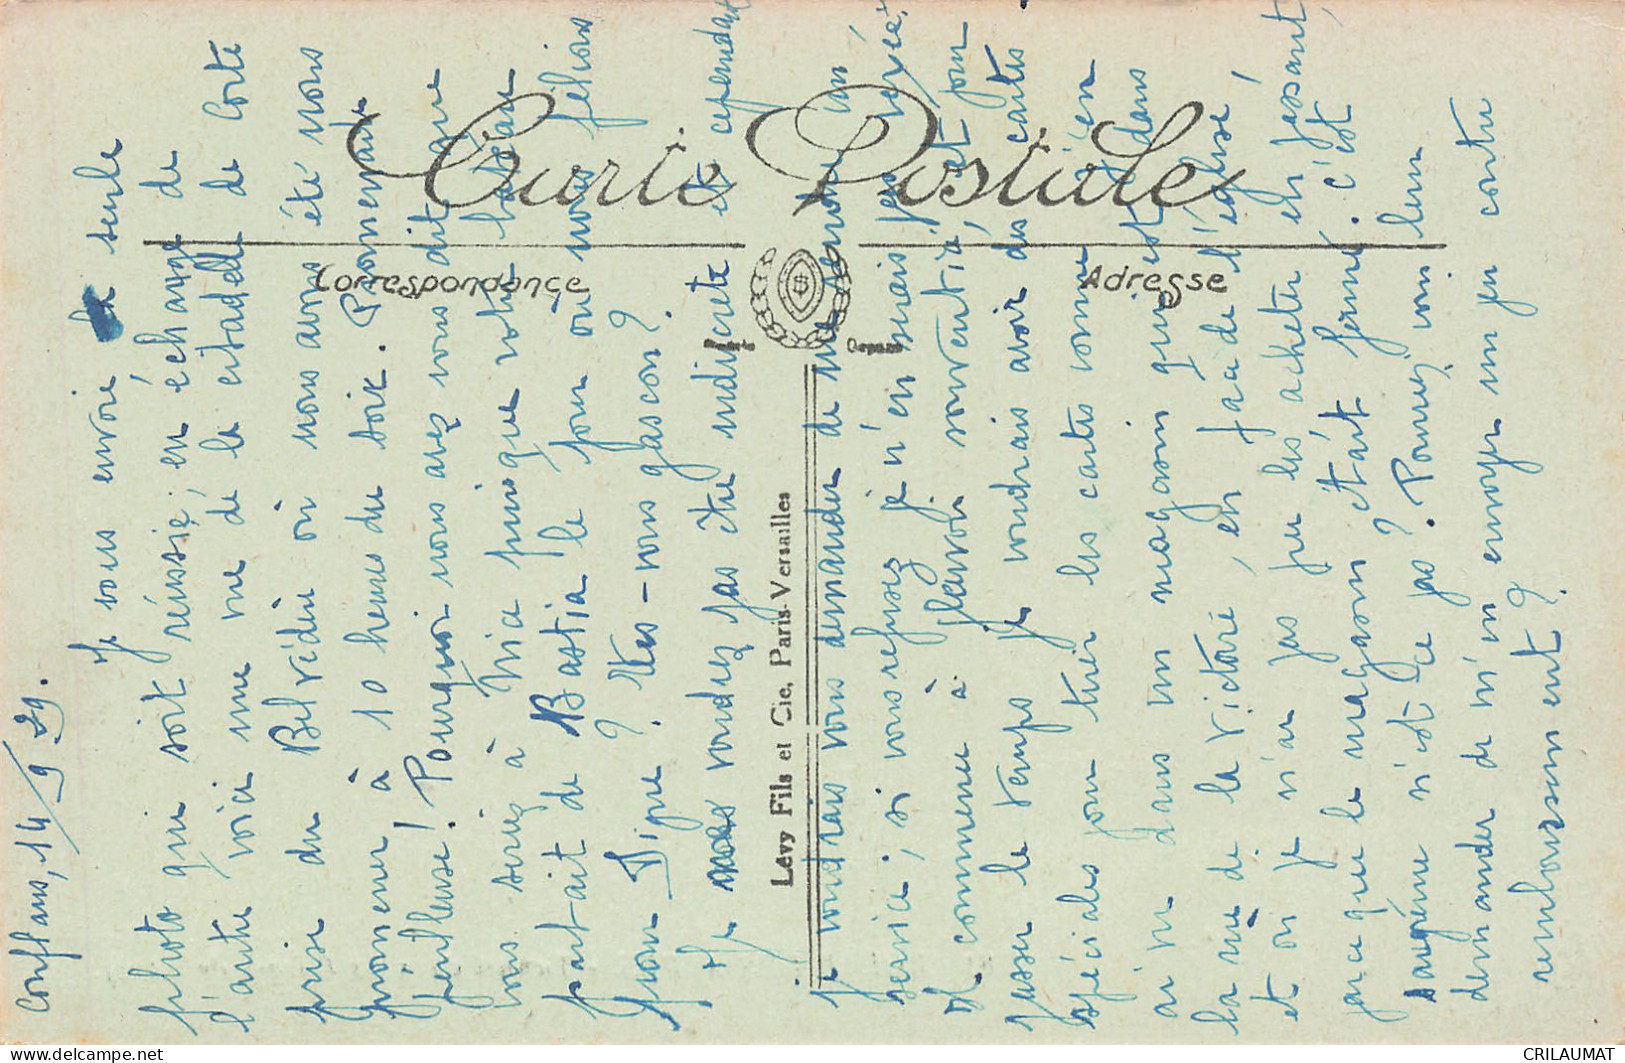 Carte Postale
Correspondance
Adresse
Lévy Fils et Cie, Paris-Versailles
Conflans, 14/9 29.
Je vous envoie la seule
photo qui soit réussie, en échange de
l'autre voici une vue de la citadelle de Corte
prise du Belvédère où nous avons été nous
promener à 10 heures du soir. Promenade
périlleuse! Pourquoi nous avez vous dit que
vous seriez à Nice puisque votre bateau
partait de Bastia le jour où nous filions
pour Dijon? Etes-vous gascon?
Ne voudrez pas être indiscrète et cependant
je voudrais vous demander de me rendre un
service; si vous refusez je n'en serais pas vexée.
Je commence à savoir, souvent, et pour
passer le temps je voudrais avoir des cartes
spéciales pour tirer les cartes comme j'en
ai vu dans un magasin qui est dans
la rue de la Victoire, en face de l'église,
et où je n'ai pas pu les acheter en passant
parce que le magasin était fermé. c'est
sans gêne n'est ce pas? Pourriez vous leur
demander de m'en envoyer un jeu contre
remboursement?
CRILAUMAT
delcampe.net